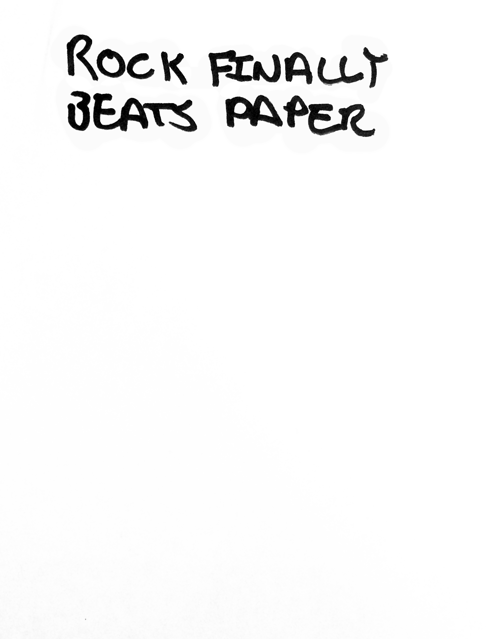 ROCK FINALLY
BEATS PAPER